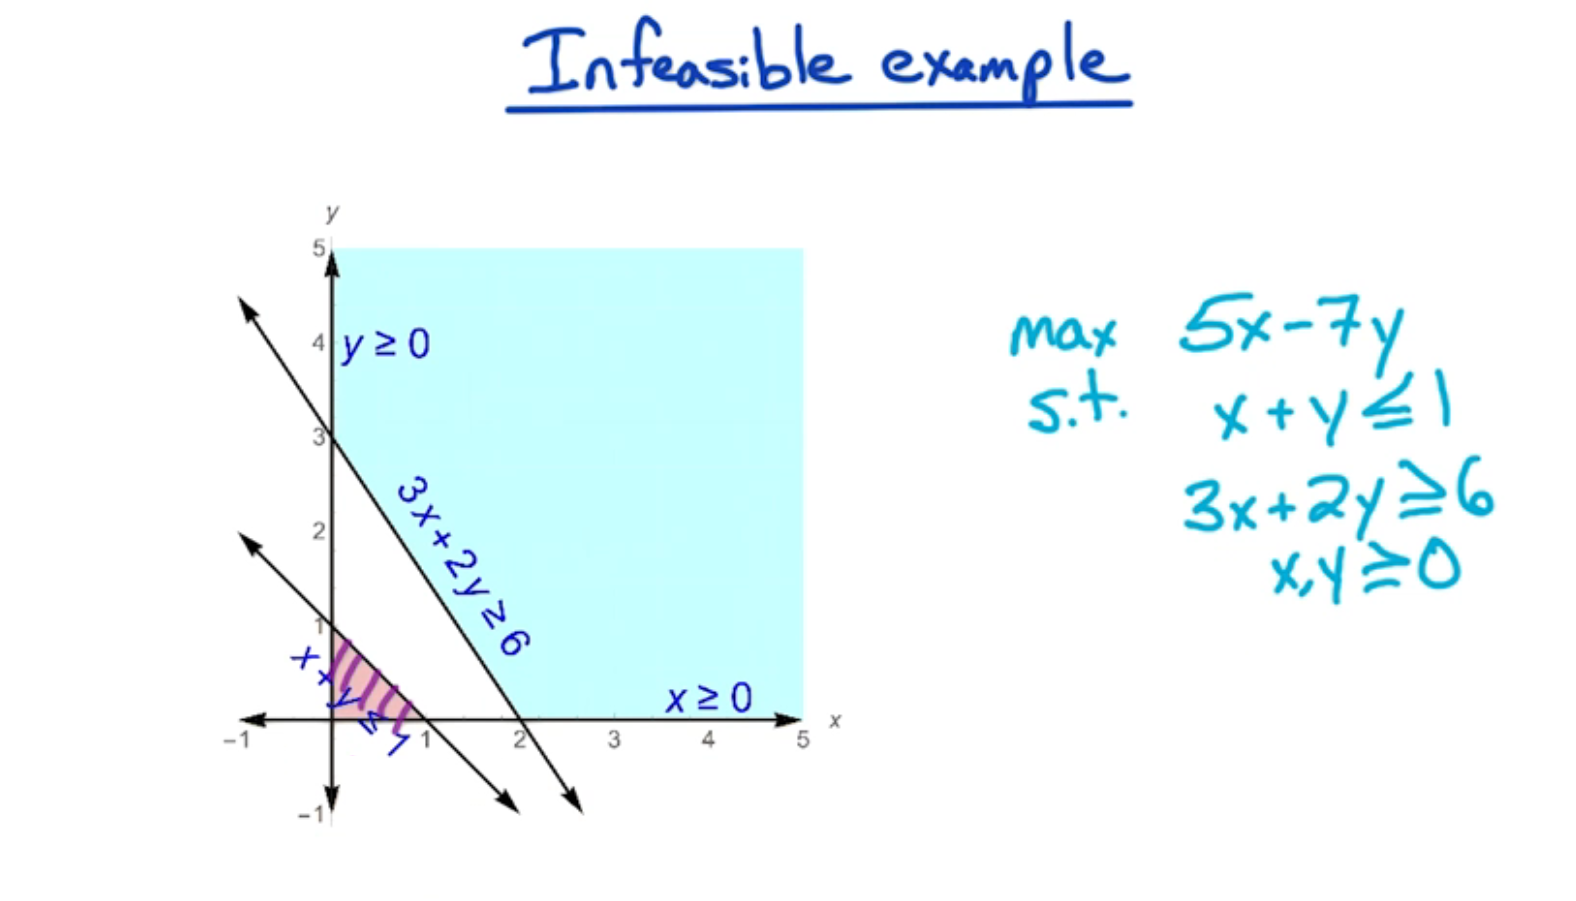 Infeasible example
y
5
4 y ≥ 0
3
3x+2y≥6
2
1
x+y≤1
x ≥ 0
-1 1 2 3 4 5 x
-1
max 5x-7y
s.t. x+y≤1
3x+2y≥6
x,y≥0